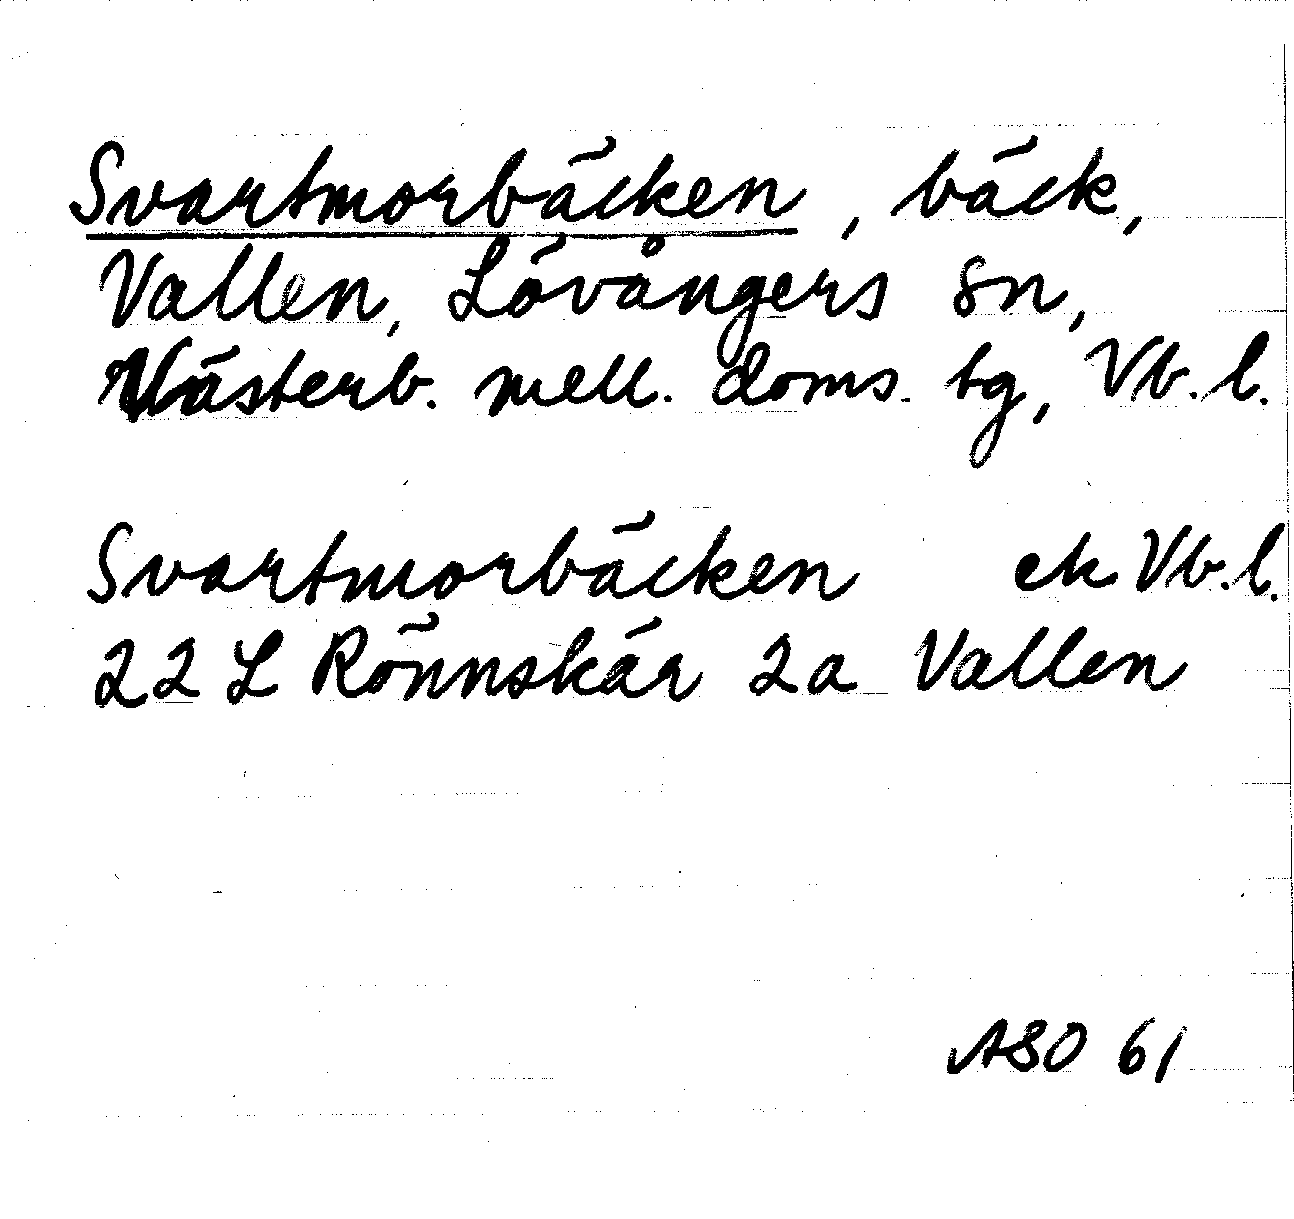 Svartmorbäcken, bäck,
Vallen, Lövångers sn,
Västerb. mell. doms. tg, Vb. l.
Svartmorbäcken ek Vb. l.
22 L Rönnskär 2a Vallen
ASO 61